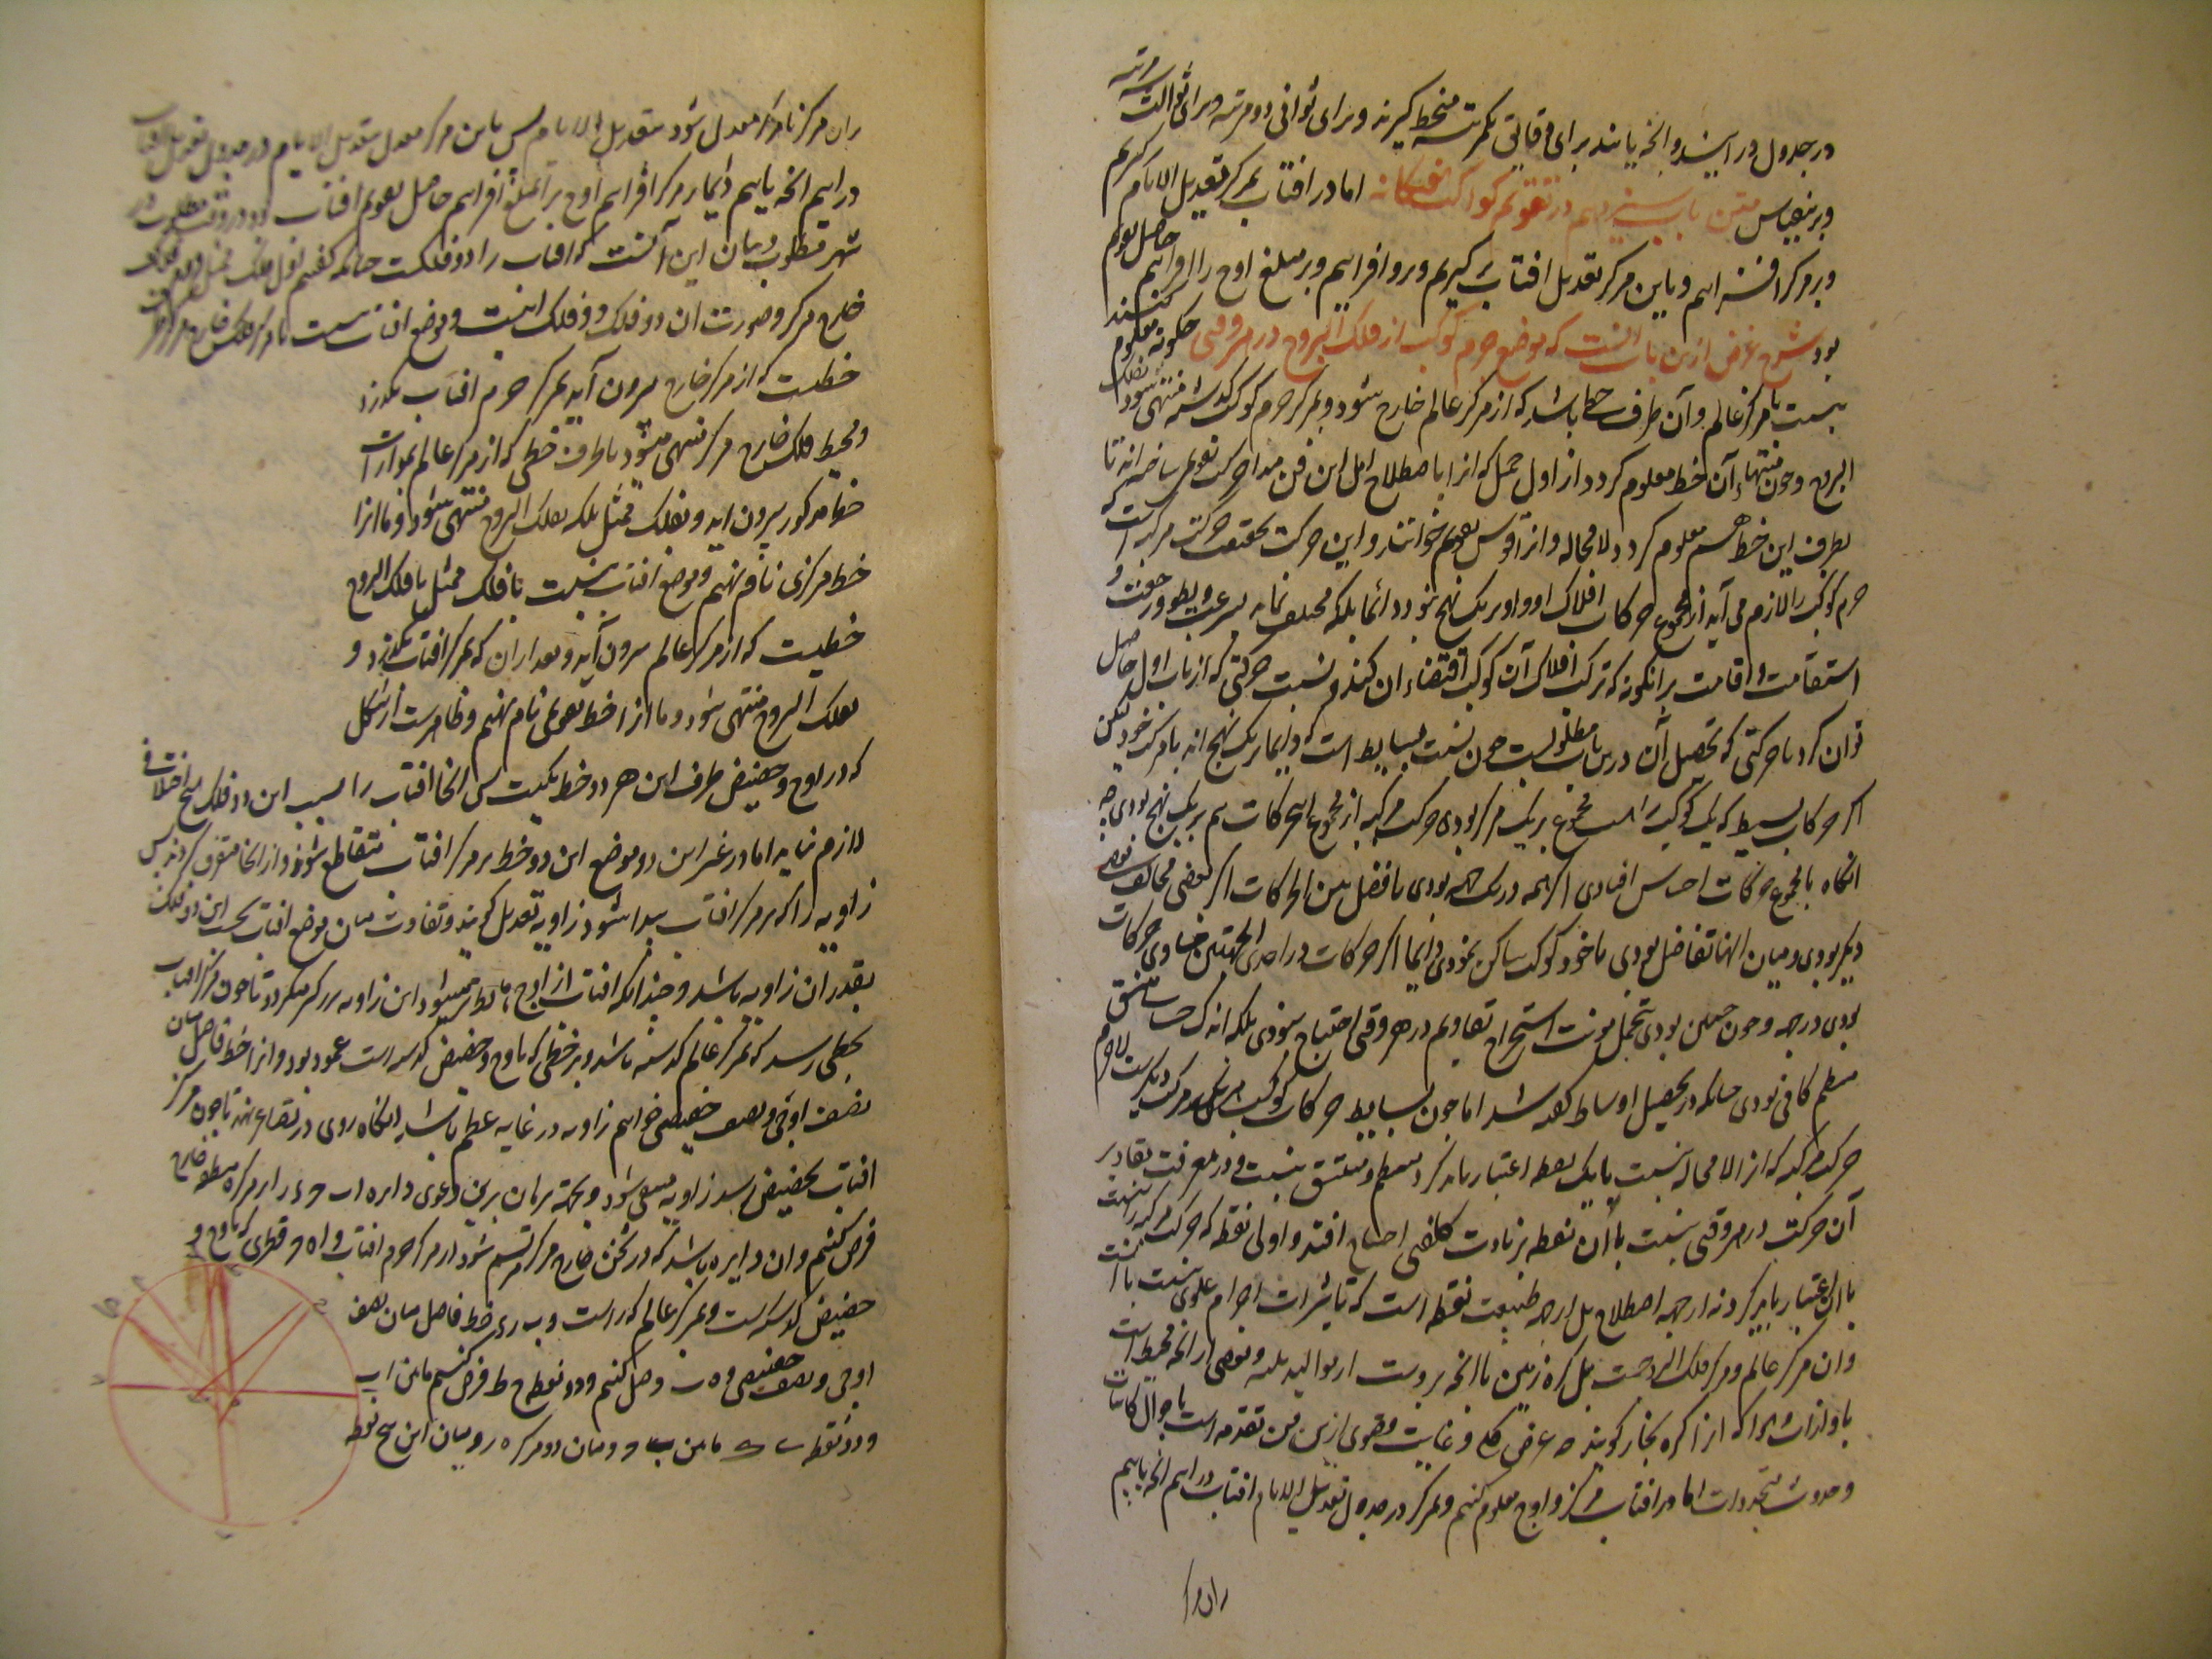 در جدول در آیند و آنچه یابند برای دقایق یکمرتبه منحط گیرند و برای ثوانی دو مرتبه و برای ثوالث سه مرتبه
و برینقیاس متن باب سیزدهم در تقویم کواکب اما در افتاب بمرکز تعدیل الایام گیریم
و برو مرکز افزاییم و باین مرکز تعدیل افتاب برگیریم و برو افزاییم و بر مبلغ اوج را افزاییم حاصل تقویم
بود شرح غرض ازین باب آنست که موضع جرم کوکب از فلک البروج در هر وقتی چگونه معلوم کنند
بنسبت با مرکز عالم و آن طرف خطی باشد که از مرکز عالم خارج شود و بمرکز جرم کوکب گذشته منتهی شود بفلک
البروج و چون منتهاء آن خط معلوم گردد از اول حمل که انرا باصطلاح اهل این فن مبدا حرکت تقویم ساخته اند تا
بطرف این خط هم معلوم گردد لامحاله و انرا قوس تقویم خوانند و این حرکت بحقیقت حرکت مرکبه است که
جرم کوکب را لازم می آید از مجموع حرکات افلاک او و او بر یک نهج نبود دائما بلکه مختلف نماید بسرعت و بطو و رجعت و
استقامت و اقامت برانگونه که ترکیب افلاک آن کوکب اقتضاء ان کند و نسبت حرکتی که از باب اول حاصل
توان کرد با حرکتی که تحصیل آن درین باب مطلوبست چون نسبت بسایط است که دایما بر یک نهج اند با مرکب خود لیکن
اگر حرکات بسیط که یک کوکب راست مجموع بر یک مرکز بودی حرکت مرکبه از مجموع این حرکات هم بر یک نهج بودی چه
انگاه بمجموع حرکات احساس افتادی اگر همه در یک جهت بودی یا فضل بین الحرکات اگر بعضی مخالف بعضی
دیگر بودی و میان انها تفاضل بودی یا خود کوکب ساکن نمودی دایما اگر حرکات در احدی الجهتین مساوی حرکات
بودی در جهت و چون چنین بودی بتحمل مونت استخراج تقاویم در هر وقتی احتیاج نبودی بلکه اندک حسابی متسق
منظم کافی بودی چنانکه در تحصیل اوساط گفته شد اما چون بسایط حرکات کوکب
حرکت مرکبه که از لامحاله نسبت با یک نقطه اعتبار باید کرد منظم و متسق نیست و در معرفت مقادیر
آن حرکت در هر وقتی بنسبت با آن نقطه بزیادت کلفتی احتیاج افتد و اولی نقطه که حرکت مرکبه را بنسبت
با آن اعتبار باید کرد نه از جهت اصطلاح بل از جهت طبیعت نقطه است که تاثیرات اجرام علوی بنسبت با آنست
و ان مرکز عالم و مرکز فلک البروجست بل کره زمین با آنچه بروست از موالید ثلثه و بعضی از آنچه محیط است
باو از هوا که انرا کره بخار گویند چه غرض کلی و غایت قصوی ازین فن تقدمه است باحوال کاینات
و حدوث متجددات اما در افتاب مرکز و اوج معلوم کنیم و بمرکز در جدول تعدیل الایام افتاب در آییم آنچه یابیم
بران مرکز
بران مرکز تا مرکز معدل شود بتعدیل الایام پس باین مرکز معدل بتعدیل الایام در جدول تعدیل افتاب
در آییم آنچه یابیم دایما بر مرکز افزاییم اوج بر آن مبلغ افزاییم حاصل تقویم افتاب بود در وقت مطلوب در
شهر مطلوب و بیان این آنست که افتاب را دو فلکست چنانکه گفتیم اول فلک ممثل و دوم فلک
خارج مرکز و صورت ان دو فلک اینست و موضع افتاب بنسبت با مرکز فلک خارج مرکز طرف
خطیست که از مرکز خارج بیرون آید بمرکز جرم افتاب بگذرد
و بمحیط فلک خارج مرکز منتهی میشود یا طرف خطی که از مرکز عالم بموازات
خط مذکور بیرون اید و بفلک ممثل بلکه بفلک البروج منتهی میشود و ما انرا
خط مرکزی نام نهیم و موضع افتاب بنسبت با فلک ممثل یا فلک البروج
خطیست که از مرکز عالم بیرون آید و بعد از ان که بمرکز افتاب بگذرد و
بفلک البروج منتهی شود و ما انرا خط تقویمی نام نهیم و ظاهرست از شکل
که در اوج و حضیض طرف این هر دو خط یکیست پس انجا افتاب را بسبب این دو فلک هیچ اختلافی
لازم نیاید اما در غیر این دو موضع این دو خط بر مرکز افتاب متقاطع شوند و از انجا متفرق گردند پس
زاویه را که بر مرکز افتاب پیدا شود زاویه تعدیل گویند و تفاوت میان موضع افتاب بحسب این دو فلک
بقدر ان زاویه باشد و چندانکه افتاب از اوج میشود این زاویه بزرگتر میگردد تا چون مرکز افتاب
بخطی رسد که بمرکز عالم گذشته باشد و بر خطی که باوج و حضیض گذشته است عمود بود و انرا خط فاصل میان
نصف اوجی و نصف حضیضی خوانیم زاویه در غایه عظم باشد انگاه روی در نقصان نهد تا چون مرکز
افتاب بحضیض رسد زاویه منتفی شود و بجهت برهان برین دعوی دایره اب ج د را بر مرکز ه منطقه خارج
فرض کنیم و ان دایره باشد که در ثخن خارج مرکز مرتسم شود از مرکز جرم افتاب و ا ه ج قطری که باوج و
حضیض گذشته است و بمرکز عالم که ر است و ب ر د خط فاصل میان نصف
اوجی و نصف حضیضی و ه ب وصل کنیم و دو نقطه ح ط فرض کنیم مابین اب
و دو نقطه ی ک مابین ب ج و میان دو مرکز ه ر و میان این پنج نقطه